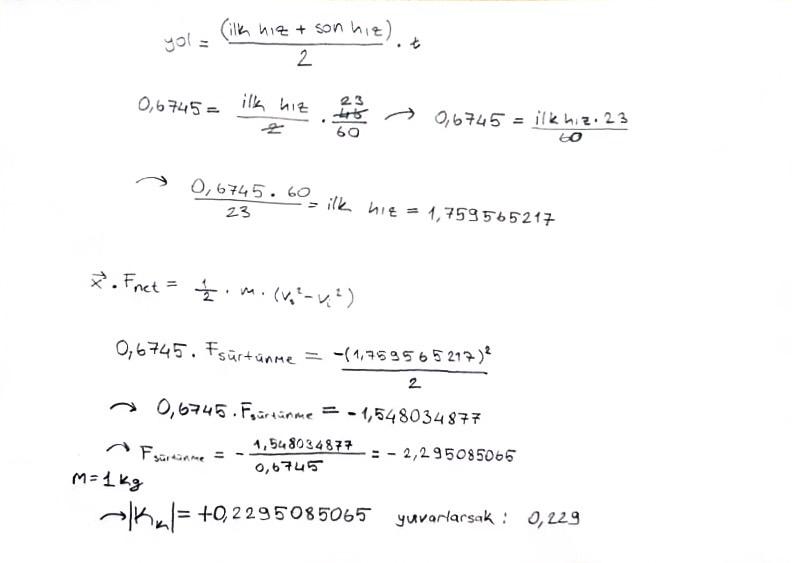 yol = (ilk hız + son hız) / 2 . t
0,6745 = ilk hız / 2 . 23 46 / 60 → 0,6745 = ilk hız . 23 / 60
→ 0,6745 . 60 / 23 = ilk hız = 1,759565217
x⃗ . Fnet = 1/2 . m . (Vs² - Vi²)
0,6745 . Fsürtünme = -(1,759565217)² / 2
→ 0,6745 . Fsürtünme = -1,548034877
→ Fsürtünme = - 1,548034877 / 0,6745 = -2,295085065
m = 1 kg
→ |Kk| = +0,2295085065 yuvarlarsak : 0,229